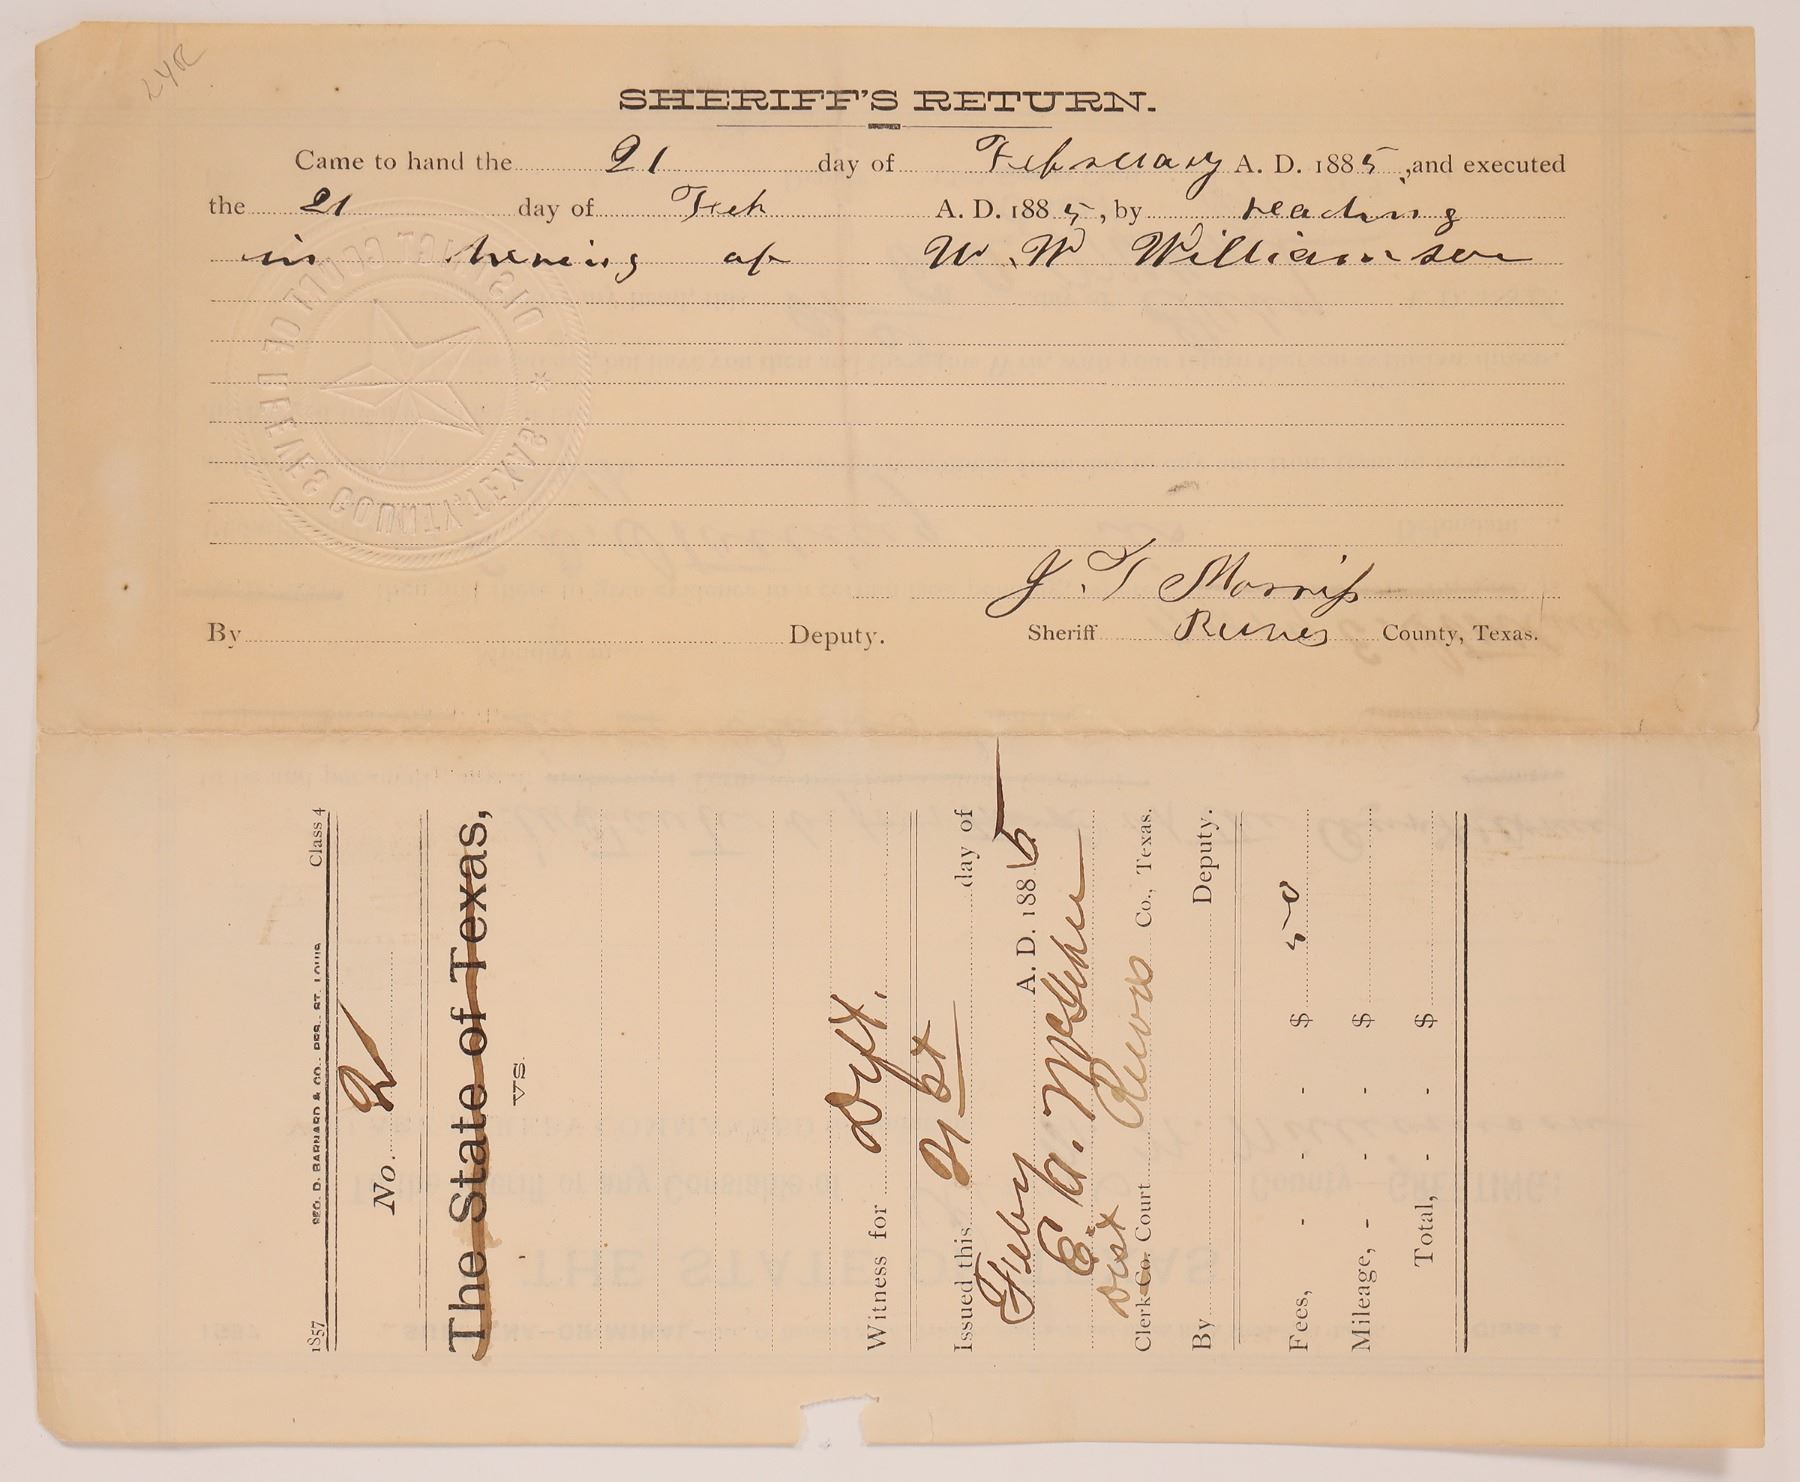 SHERIFF'S RETURN.
Came to hand the 21 day of February A. D. 1885, and executed
the 21 day of Feb A. D. 1885, by reading
in hering of W. W Williamson
J. T Morris
By Deputy. Sheriff Reeves County, Texas.
DISTRICT COURT OF REEVES COUNTY, TEXAS.
1857 GEO. D. BARNARD & CO., PRS., ST. LOUIS Class 4
No. 2
The State of Texas,
vs.
Witness for Deft.
Issued this 21st day of
Feby A. D. 1885
E. A. McGehee
Dist
Clerk Co. Court Reeves Co., Texas.
By Deputy.
Fees, - - - $ 50
Mileage, - - - $
Total, - - $